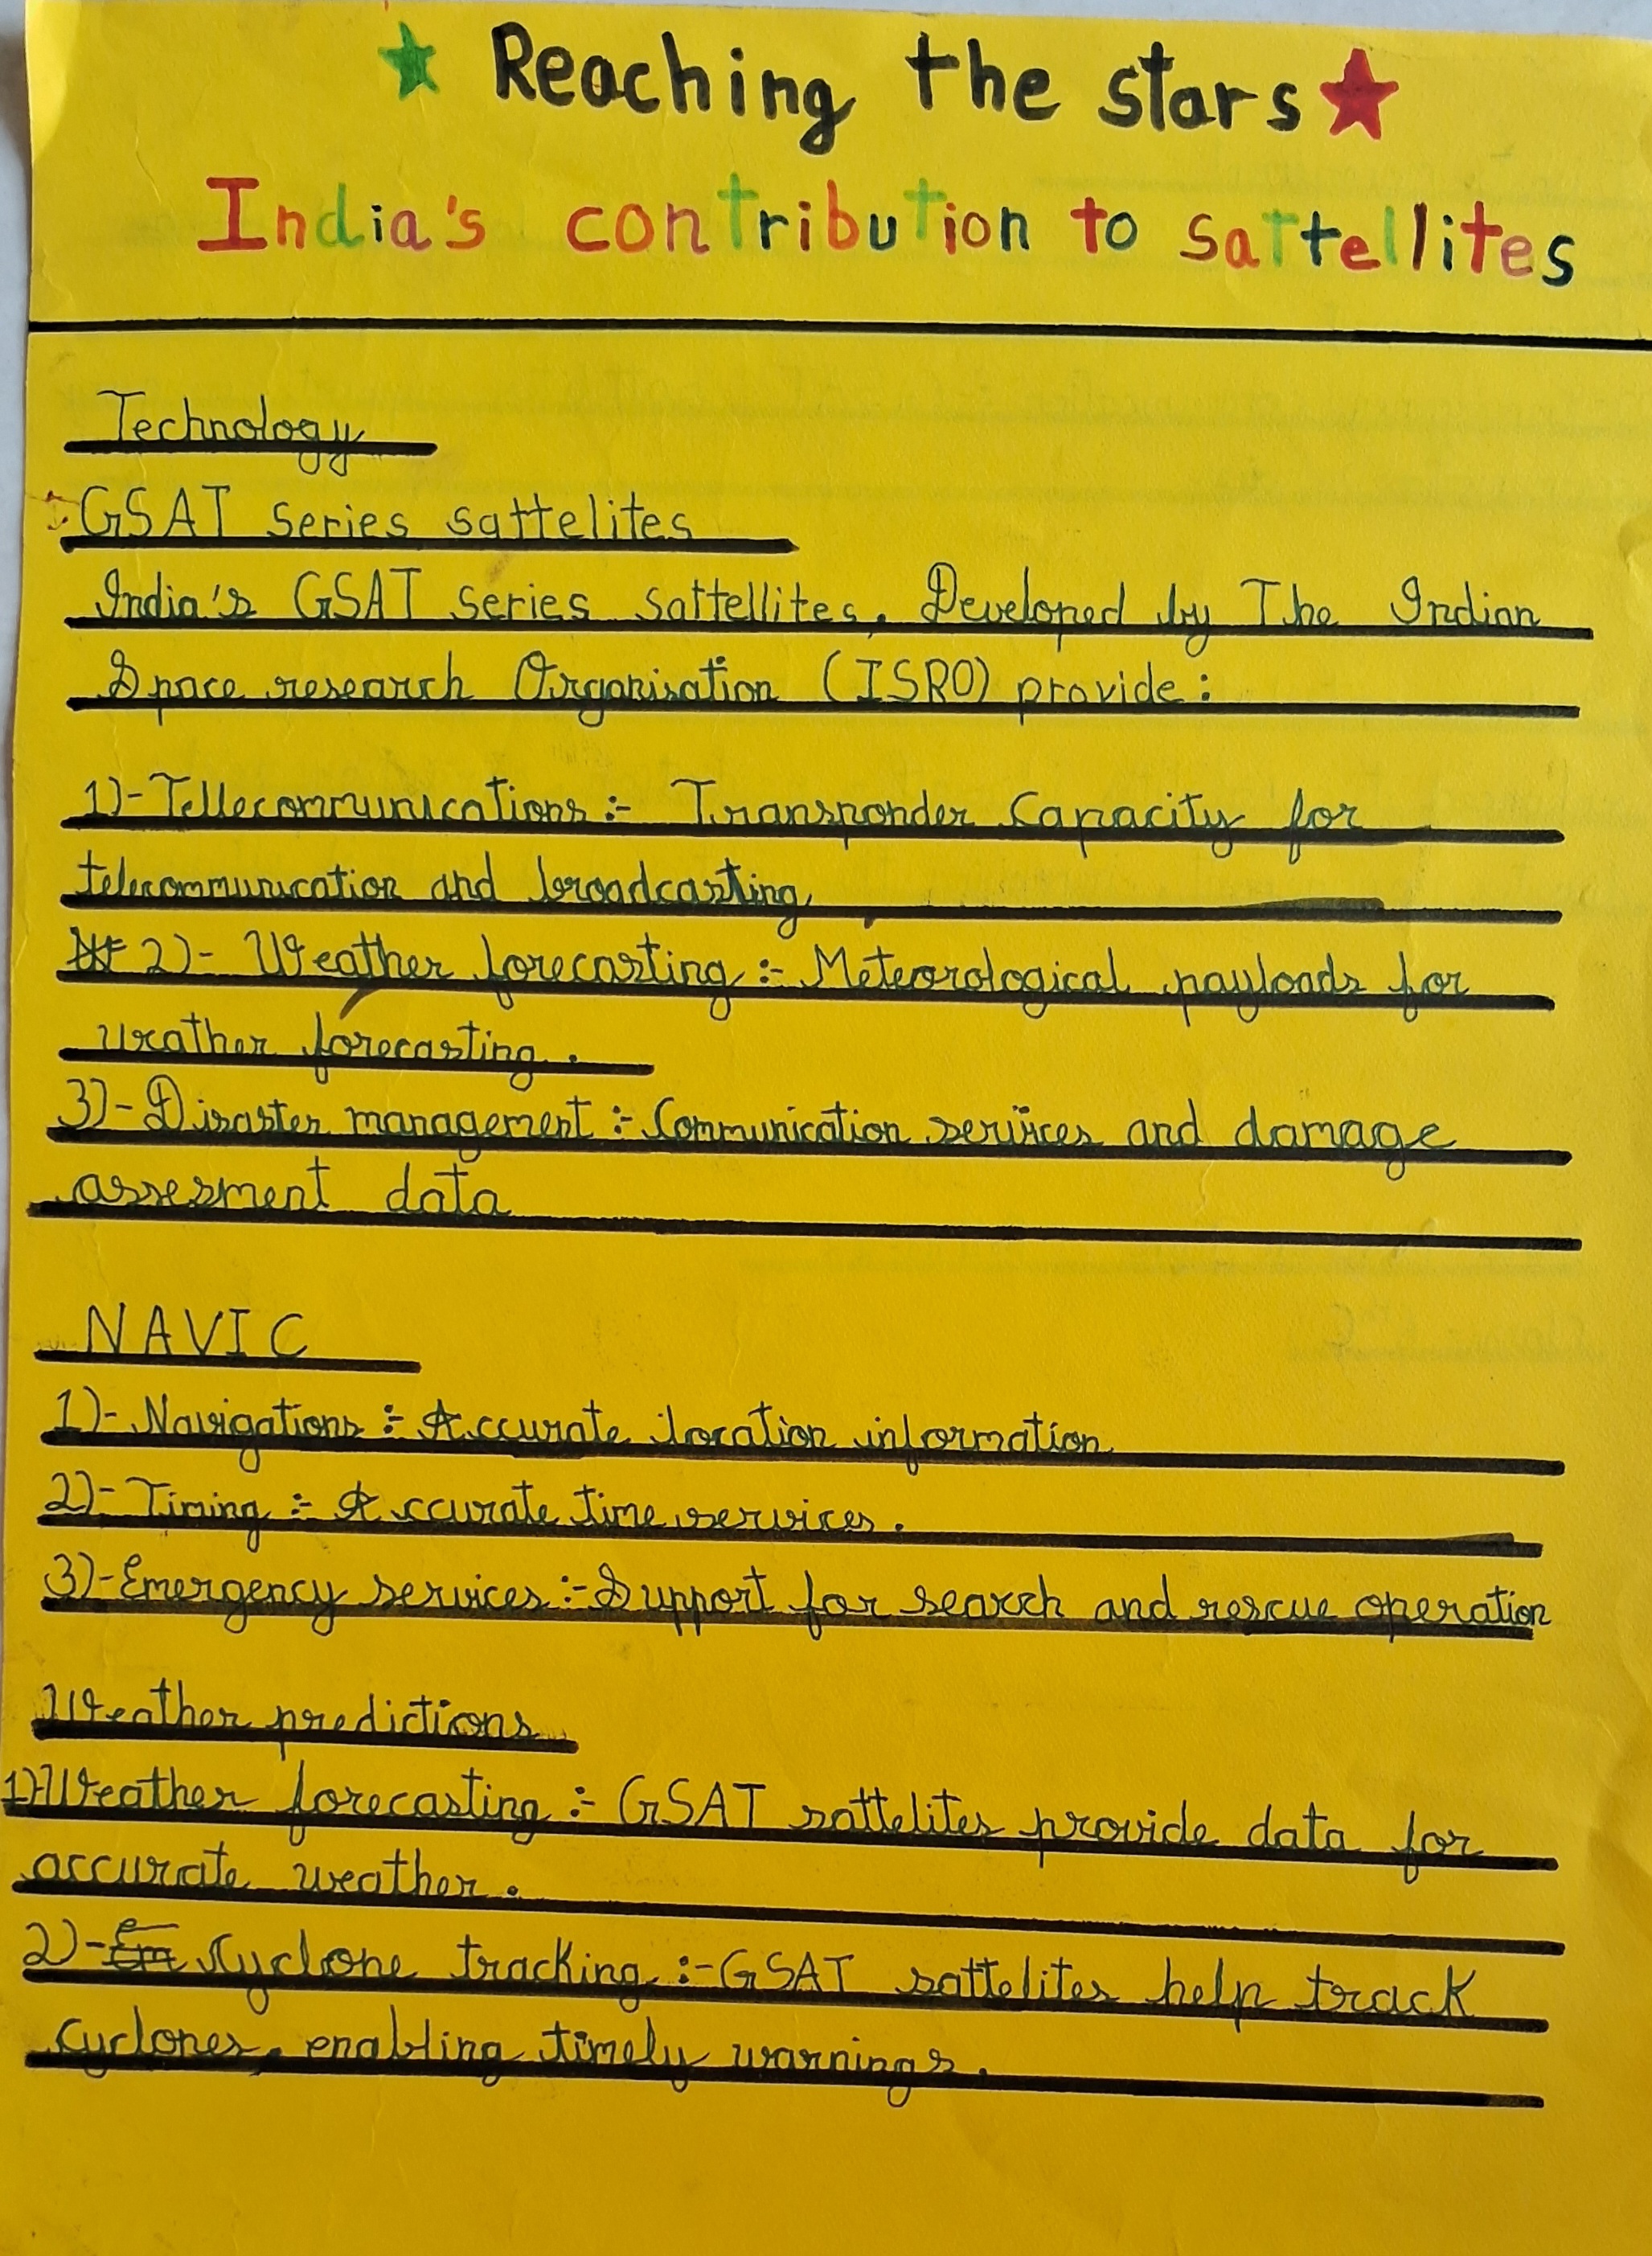 Reaching the stars
India's contribution to sattellites
Technology
GSAT series sattelites
India's GSAT series sattellites, Developed by The Indian
Space research Organisation (ISRO) provide:
1)- Tellecommunications :- Transponder Capacity for
telecommunication and broadcasting
2)- Weather forecasting :- Meteorological payloads for
weather forecasting.
3)- Disaster management :- Communication services and damage
assesment data
NAVIC
1)- Navigations :- Accurate location information
2)- Timing :- Accurate time services.
3)- Emergency services :- Support for search and rescue operation
Weather predictions
1)- Weather forecasting :- GSAT sattelites provide data for
accurate weather.
2)- Cyclone tracking :- GSAT sattelites help track
cyclones, enabling timely warnings.